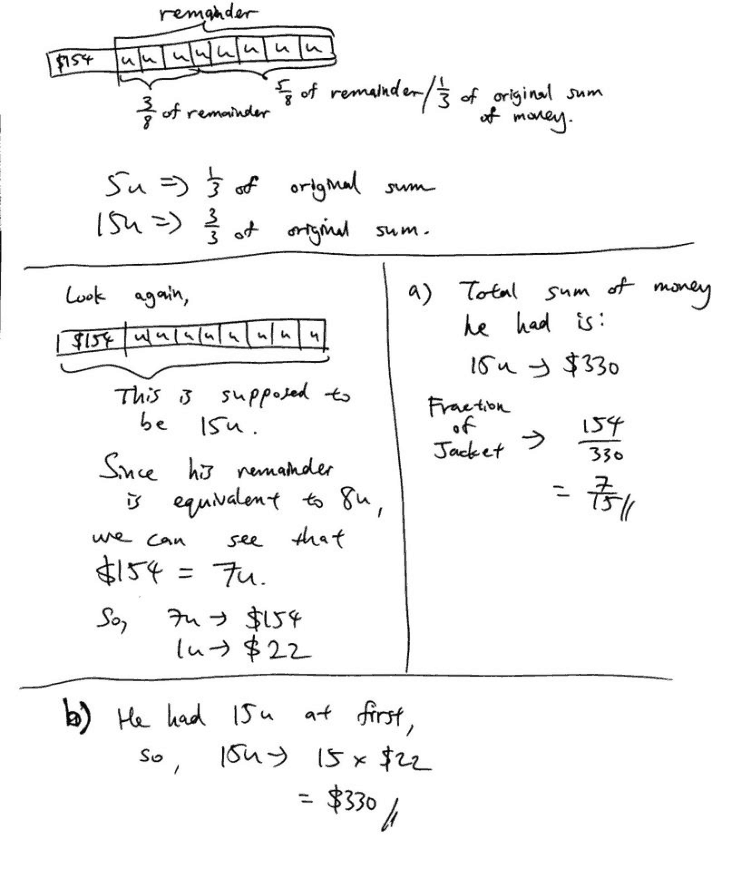 remainder
$154 u u u u u u u u
3/8 of remainder
5/8 of remainder/1/3 of original sum of money.
5u => 1/3 of original sum
15u => 3/3 of original sum.
Look again,
$154 u u u u u u u u
This is supposed to
be 15u.
Since his remainder
is equivalent to 8u,
we can see that
$154 = 7u.
So, 7u → $154
1u → $22
a) Total sum of money
he had is:
15u → $330
Fraction
of
Jacket → 154/330
= 7/15//
b) He had 15u at first,
so, 15u → 15 x $22
= $330//